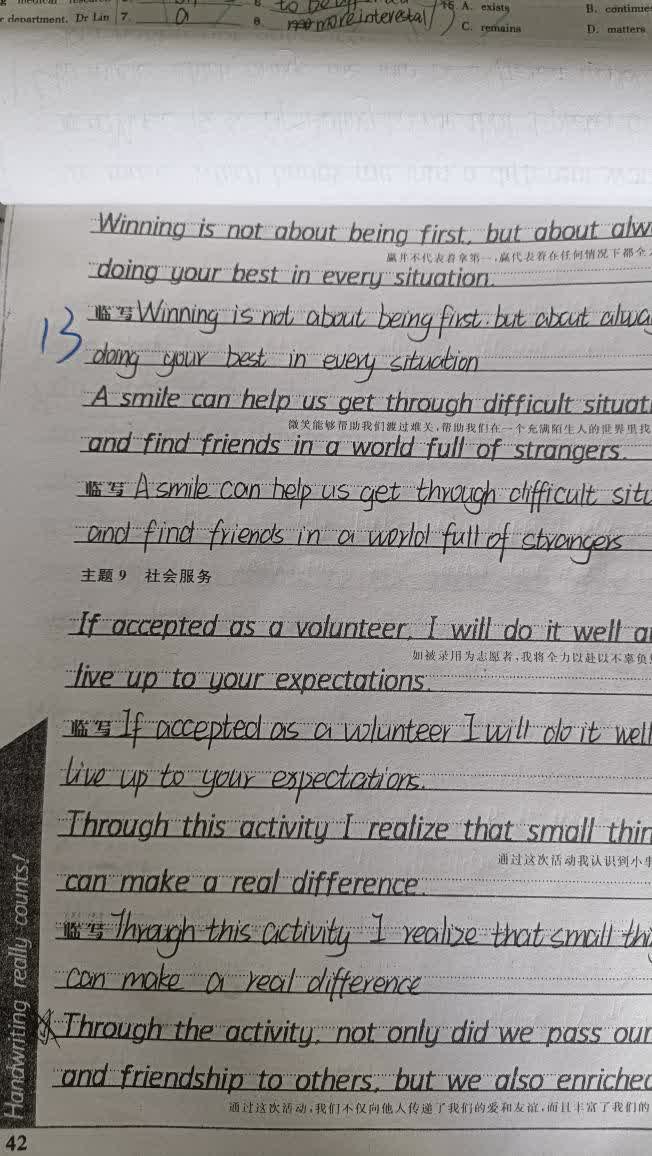 department. Dr Lin 7. a 8. more interestal 15 A. exists B. continue
C. remains D. matters
Winning is not about being first, but about alw
赢并不代表着拿第一,赢代表着在任何情况下都全
doing your best in every situation.
临写 Winning is not about being first. but about alwa
13
doing your best in every situation
A smile can help us get through difficult situat
微笑能够帮助我们渡过难关,帮助我们在一个充满陌生人的世界里找
and find friends in a world full of strangers.
临写 A smile can help us get through difficult situ
and find friends in a world full of strangers
主题9 社会服务
If accepted as a volunteer, I will do it well a
如被录用为志愿者,我将全力以赴以不辜负
live up to your expectations.
临写 If accepted as a volunteer I will do it well
live up to your expectations.
Through this activity I realize that small thin
通过这次活动我认识到小事
can make a real difference.
临写 Through this activity I realize that small thi
can make a real difference
Through the activity, not only did we pass our
and friendship to others, but we also enriched
通过这次活动,我们不仅向他人传递了我们的爱和友谊,而且丰富了我们的
Handwriting really counts!
42